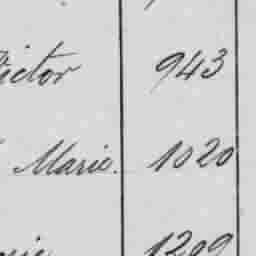 Victor 943
Marie. 1020
1209